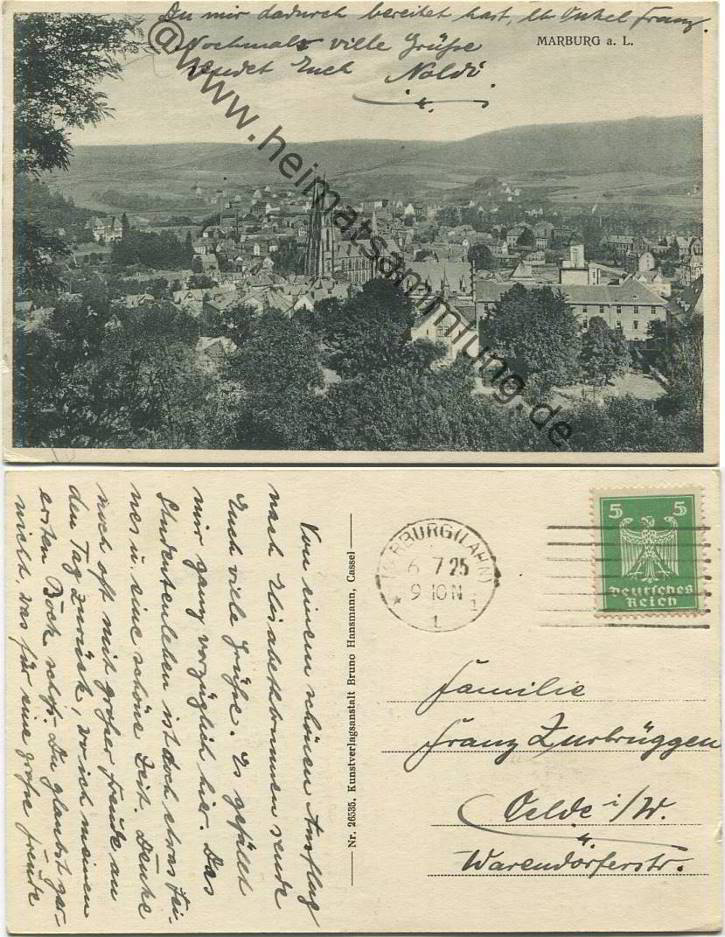 Du mir dadurch bereitet hast, lb Onkel Franz.
Nochmals viele Grüße
sendet Euch Noldi
MARBURG a. L.
@www.heimatsammlung.de
Von einem schönen Ausflug
nach Elisabethbrunnen sende
Euch viele Grüße. Es gefällt
mir ganz vorzüglich hier. Das
Studentenleben ist doch etwas Fei-
nes u. eine schöne Zeit. Denke
noch oft mit großer Freude an
den Tag zurück, wo ich meinen
ersten Bock schoß. Du glaubst gar-
nicht, was für eine große Freude
Nr. 26535, Kunstverlagsanstalt Bruno Hansmann, Cassel
MARBURG (LAHN)
6 7 25
9-10 N
1
5 5
Deutsches
Reich
Familie
Franz Zurbrüggen
Oelde i/W.
Warendorferstr.